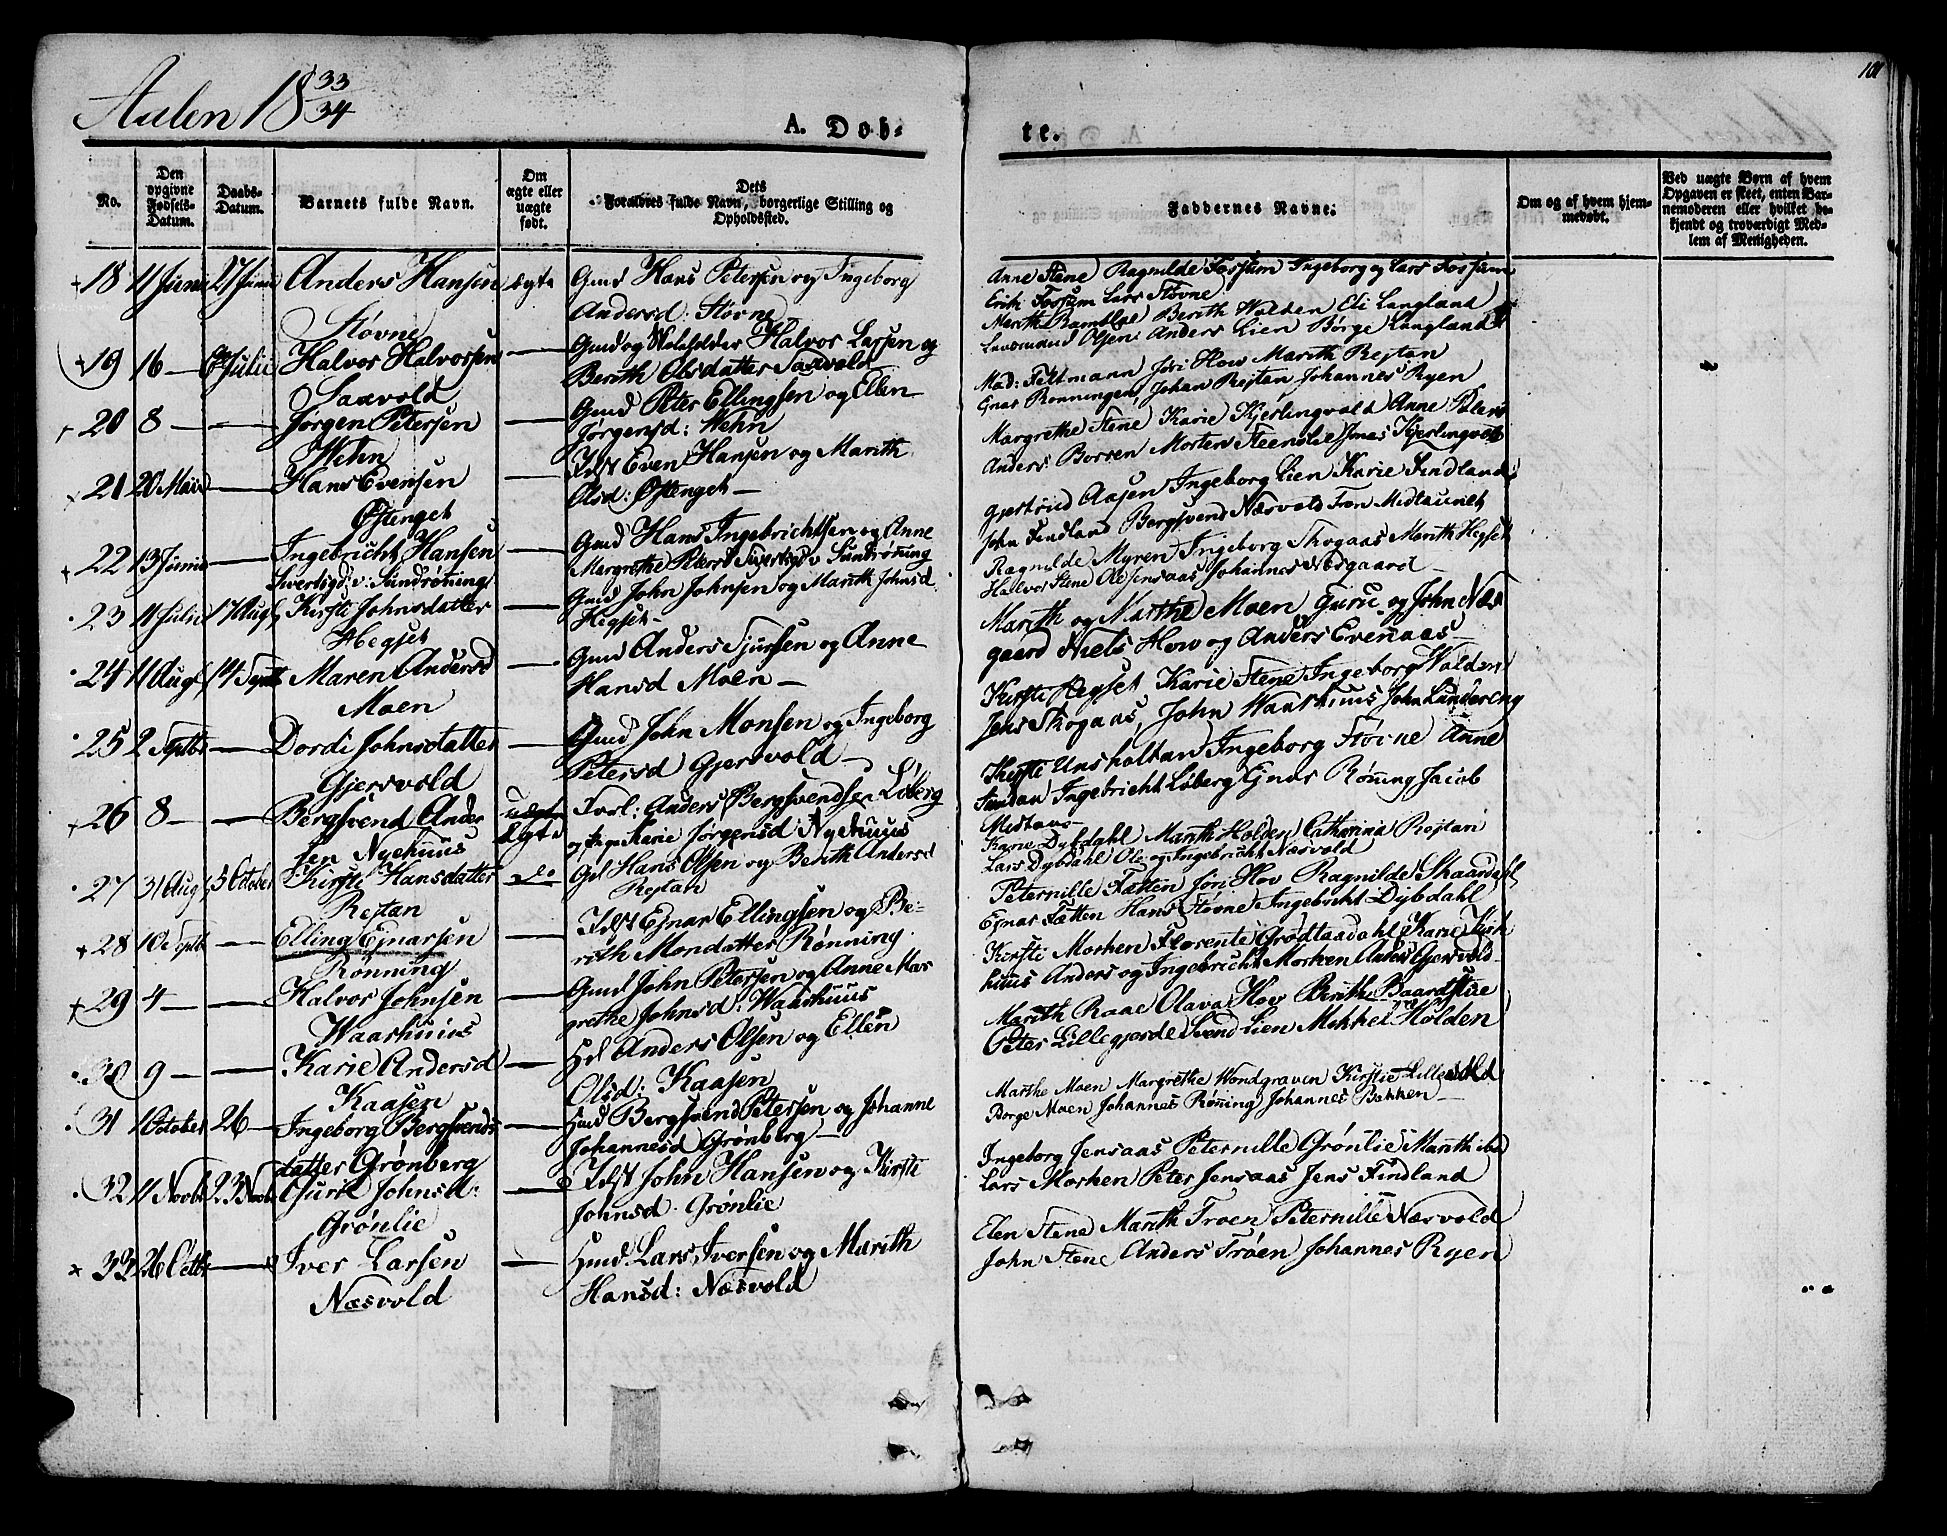 Aalen 18 33/34
101
A. Døb-
te.
No.
Den opgivne Fødsels-Datum.
Daabs-Datum.
Barnets fulde Navn.
Om ægte eller uægte født.
Dets Forældres fulde Navn, borgerlige Stilling og Opholdssted.
Faddernes Navne.
Om og af hvem hjem-medøbt.
Ved uægte Børn af hvem Opgaven er skeet, enten Bar-nemoderen eller hvilket be-kjendt og troværdigt Med-lem af Menigheden.
18 11 Junii 27 Junii Anders Hansen ægte Gmd Hans Petersen og Ingeborg
Støvne
Andersd: Støvne
Anne Stene Ragnilde Fossum Ingeborg og Lars Fossum
Erik Fossum Lars Støvne
19 16 — Julii Halvor Halvorsen — Gmd og Halvor Larsen og
Saxvold
Berith Olsdatter Saxvold
Marith Berith Holden Eli Langland
Olsen Anders Lien Børge Langland
20 8 — — Jørgen Petersen — Gmd Peter Ellingsen og Ellen
Wehn
Jørgensd: Wehn
Mad: Feltmann Jøri How Marith Rejtan
Ejnar Rønningen, Johan Rejtan Johannes Ryen
21 20 Maii — Hans Evensen — Idst Even Hansen og Marith
Østenget
Olsd: Østenget —
Margrethe Stene Karie Kjerlingvold Anne
Anders Borren Morten Jonas Kjerlingvold
22 13 Junii — Ingebricht Hansen — Gmd Hans Ingebrichtsen og Anne
Sundrøning
Margrethe Sundrøning
Gjertrud Aasen Ingeborg Lien Karie Findland
John Findland Bergsvend Næsvold Tron Midtaunet
23 11 Julii 17 Aug Kirsti Johnsdatter — Gmd John Johnsen og Marith Johnsd
Hegset
Hegset —
Ragnilde Myren Ingeborg Skogaas Marith Hegset
Halvor Stene Ole Jensaas Johannes Næsgaard —
24 11 Aug 14 Septb Maren Andersd — Gmd Anders Sjursen og Anne
Moen
Hansd Moen —
Marith og Marthe Moen Guru og John Næs
gaard Niels How og Anders Evenaas —
25 2 Septbr — Dordi Johnsdatter — Gmd John Monsen og Ingeborg
Gjersvold
Petersd Gjersvold —
Kirsti Hegset Karie Stene Ingeborg Holden
Jens Skogaas, John Waarhuus John Lundereng
26 8 — — Bergsvend Ander uægte Forl: Anders Bergsvendsen Løberg
sen Nyehuus Ægte
og Karie Jørgensd Nyehuus
Kirsti Unsholtan Ingeborg Støvne Anne
Ingebricht Løberg Ejnar Rønning Jacob
Midtaun
27 31 Aug 5 October Kirsti Hansdatter do Hans Olsen og Berith Andersd
Rejtan
Rejtan
Karie Dybdahl Marith Holden Catharina Rejtan
Lars Dybdahl Ole og Ingebricht Næsvold
28 10 Septb — Elling Ejnarsen — Idst Ejnar Ellingsen og Be-
Rønning
rith Monsdatter Rønning.
Peternille Fætten Jøri Hov Ragnilde Skaardahl
Ejnar Fætten Hans Støvne Ingebricht Dybdahl
29 4 — — Halvor Johnsen — Gmd John Petersen og Anne Mar
Waarhuus
grethe Johnsd: Waarhuus
Kirsti Morken Florente Grødtaadahl Karie
huus Anders og Ingebricht Morken Anders Gjersvold
30 9 — — Karie Andersd — Anders Olsen og Ellen
Kaasen
Olsd: Kaasen
Marith Raae Olava Hov Berithe Baardstue
Peter Lillegjerde Svend Lien Mikkel Holden
31 1 October 26 — Ingeborg Bergsvends — Bergsvend Petersen og Johanne
datter Grønberg
Johannesd Grønberg —
Marthe Moen Margrethe Wondgraven Kirstie Lillevold
Børge Moen Johannes Rønning Johannes Bakken —
32 11 Novbr 23 Novbr Gurie Johnsd: — Idst John Hansen og Kirsti
Grønlie
Johnsd. Grønlie
Ingeborg Jensaas Peternille Grønlie Marith ibd
Lars Morken Peter Jensaas Jens Findland
33 26 Octbr — Iver Larsen — Gmd Lars Iversen og Marith
Næsvold
Hansd: Næsvold
Elen Stene Marith Troen Peternille Næsvold
John Stene Anders Trøen Johannes Ryen